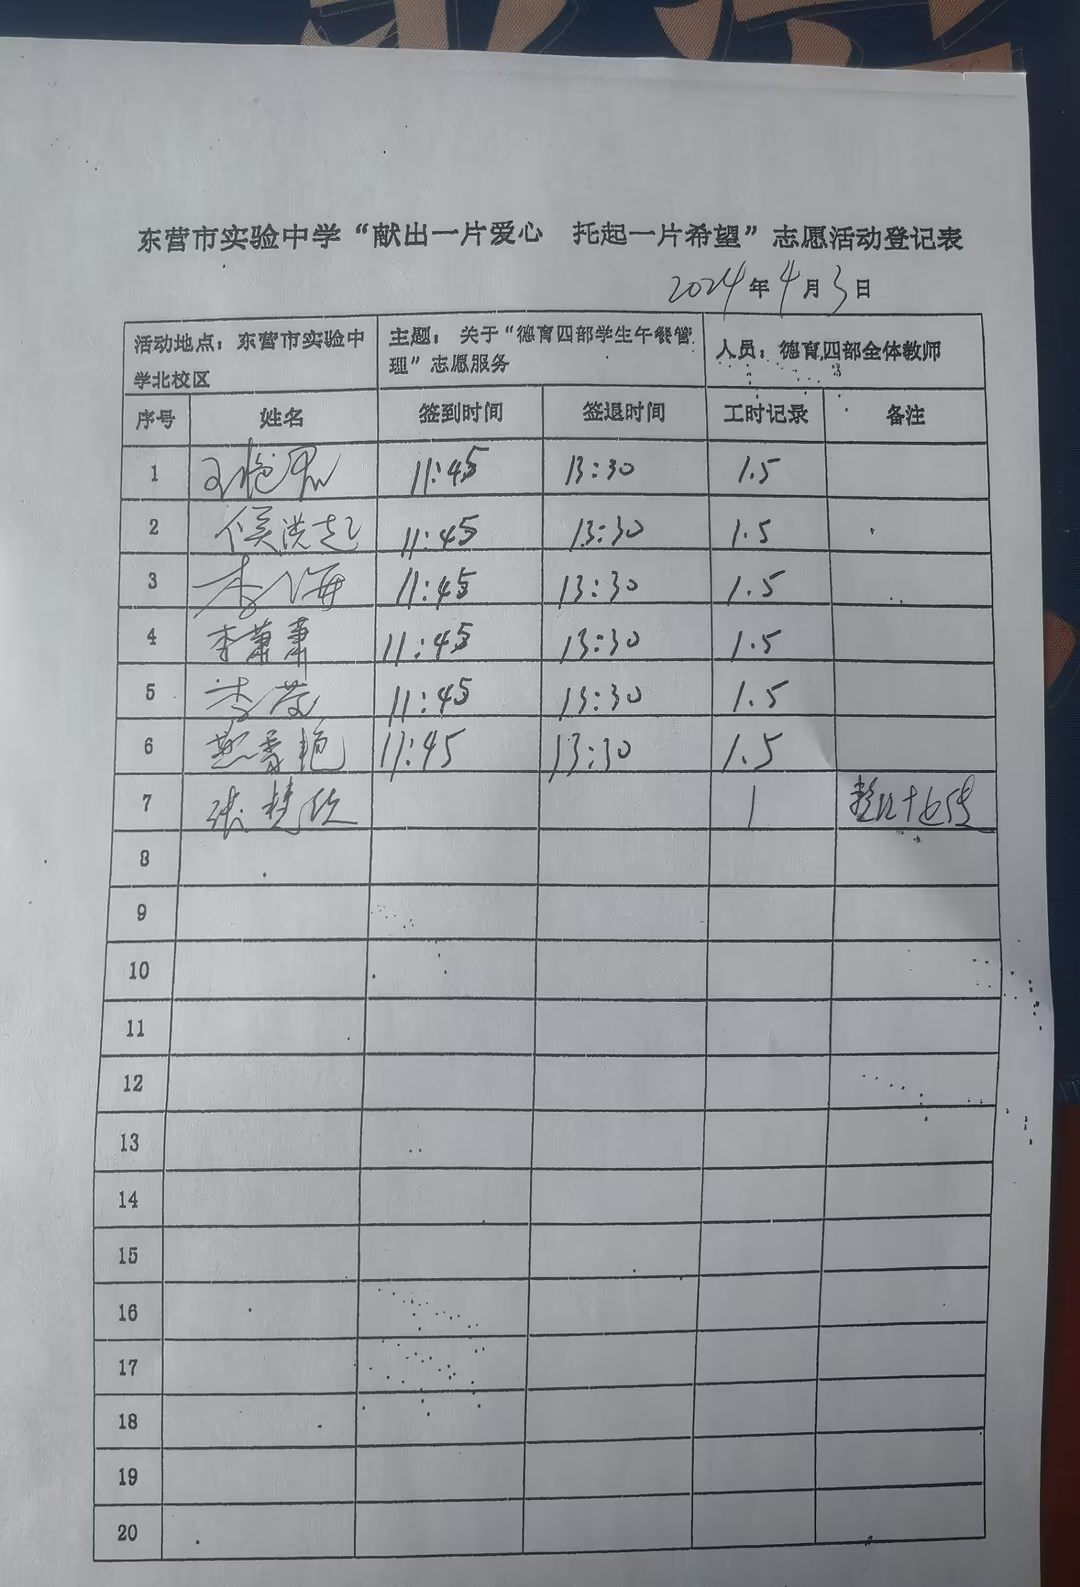 东营市实验中学“献出一片爱心 托起一片希望”志愿活动登记表
2024年4月3日
活动地点：东营市实验中学北校区 主题：关于“德育四部学生午餐管理”志愿服务 人员：德育四部全体教师
序号 姓名 签到时间 签退时间 工时记录 备注
1 王艳 11:45 13:30 1.5
2 侯洪起 11:45 13:30 1.5
3 李海 11:45 13:30 1.5
4 李萧萧 11:45 13:30 1.5
5 李 11:45 13:30 1.5
6 11:45 13:30 1.5
7 张 1
8
9
10
11
12
13
14
15
16
17
18
19
20